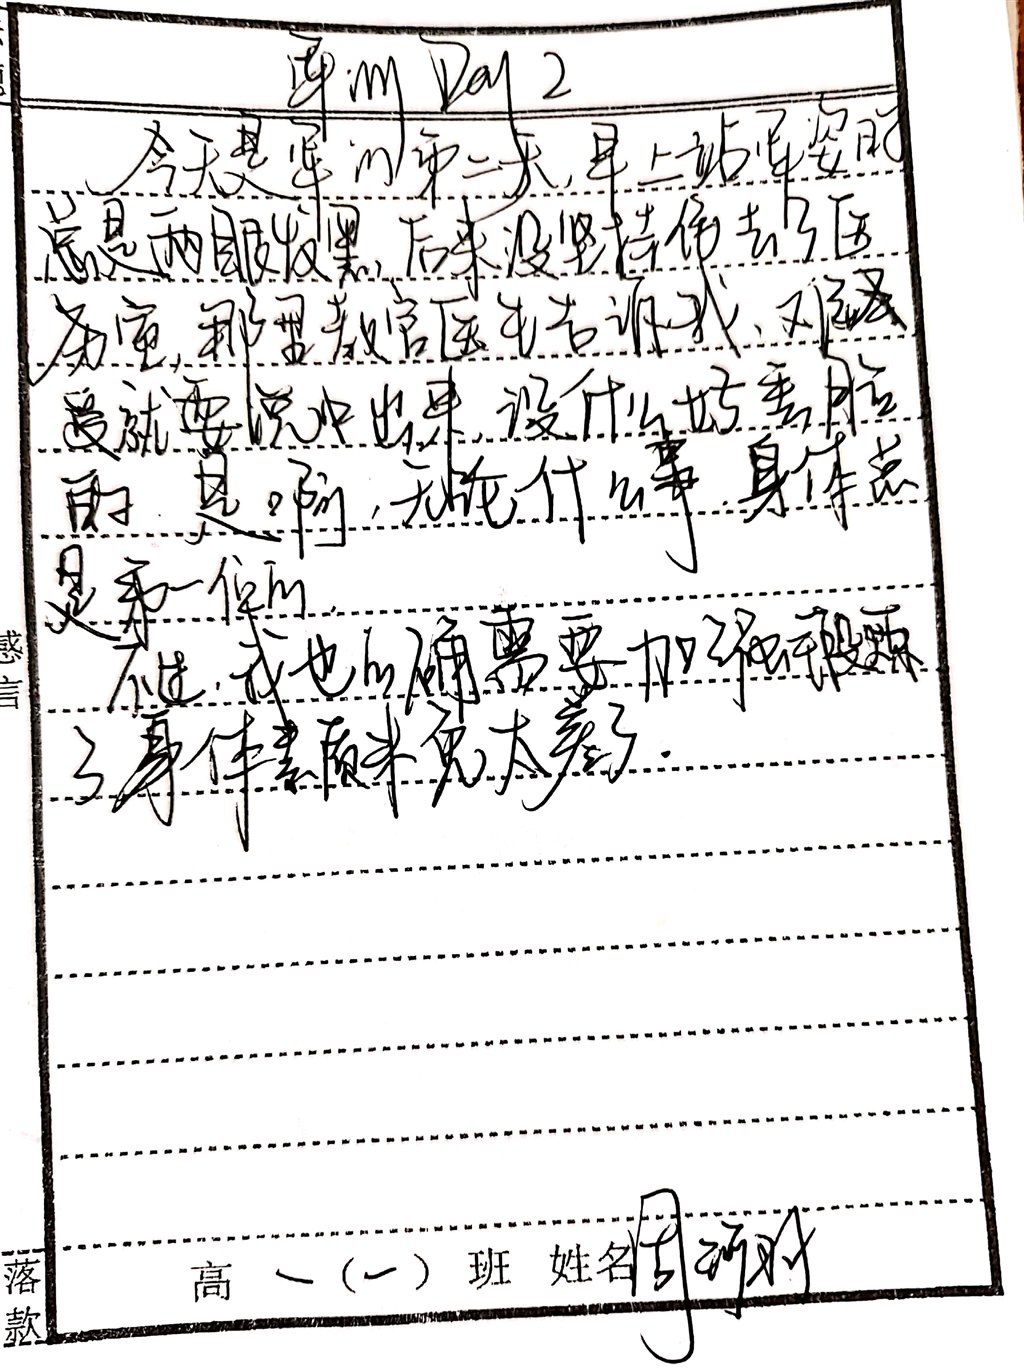 军训 Day 2
今天是军训第二天,早上站军姿时
总是两眼发黑,后来没坚持住去了医
务室,那里教官医生告诉我,难
受就要说出来,没什么好害怕
的.是啊,无论什么事,身体总
是第一位的.
不过,我也的确需要加强锻炼
了,身体素质未免太差了.
感言
落款
高一(一)班 姓名周